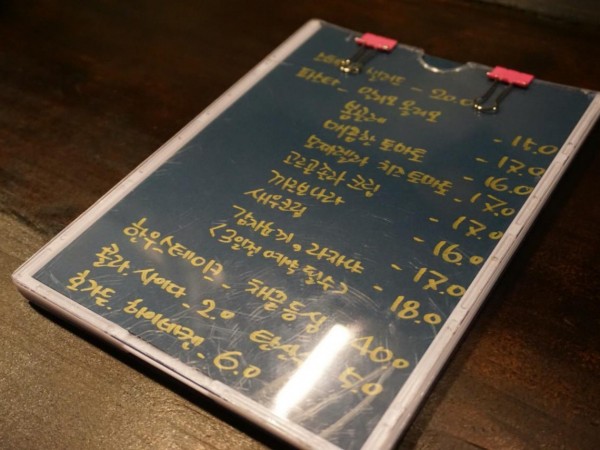 샐러드 - 20.0
파스타 - 알리오 올리오 - 15.0
봉골레 - 17.0
매콤한 토마토 - 16.0
모짜렐라 치즈 토마토 - 17.0
고르곤졸라 크림 - 17.0
까르보나라 - 16.0
새우크림 - 17.0
감자뇨끼, 라자냐 - 18.0
<3일전 예약 필수>
한우스테이크 - 채끝등심 40.0
안심 50
콜라 사이다 - 2.0
호가든, 하이네켄 - 6.0